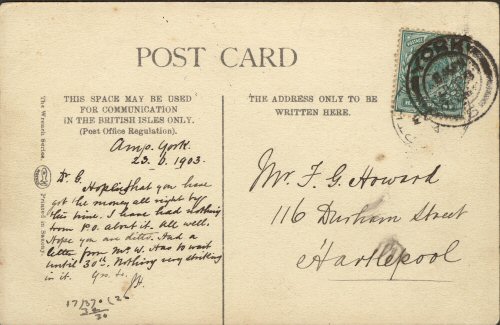 POST CARD
THIS SPACE MAY BE USED
FOR COMMUNICATION
IN THE BRITISH ISLES ONLY.
(Post Office Regulation).
Amp. York.
1903.
Hoping that you have
got the money all right by
this time. I have had nothing
from P.O. about it. All well.
Hope you are ditto. Had a
letter from Mr. W. Has to wait
until 30th. Nothing very striking
in it.
The Wrench Series.
Printed in Saxony
THE ADDRESS ONLY TO BE
WRITTEN HERE.
Mr. F. G. Howard
116 Durham Street
Hartlepool
YORK